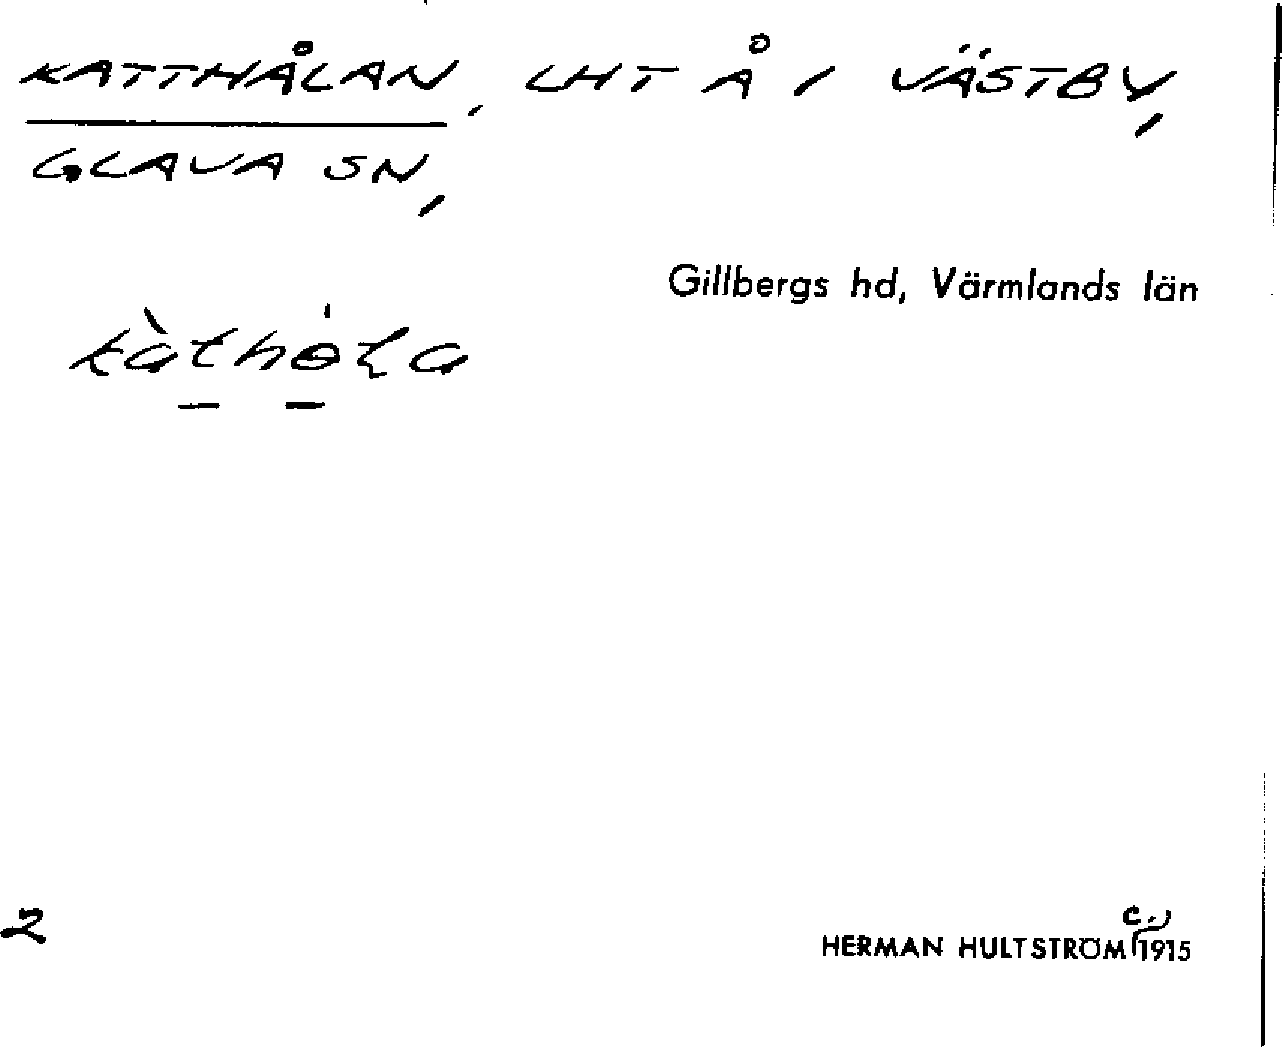 KATTHÅLAN, LHT Å I VÄSTBY,
GLAVA SN,
Gillbergs hd, Värmlands län
2
c.,
HERMAN HULTSTRÖM 1915